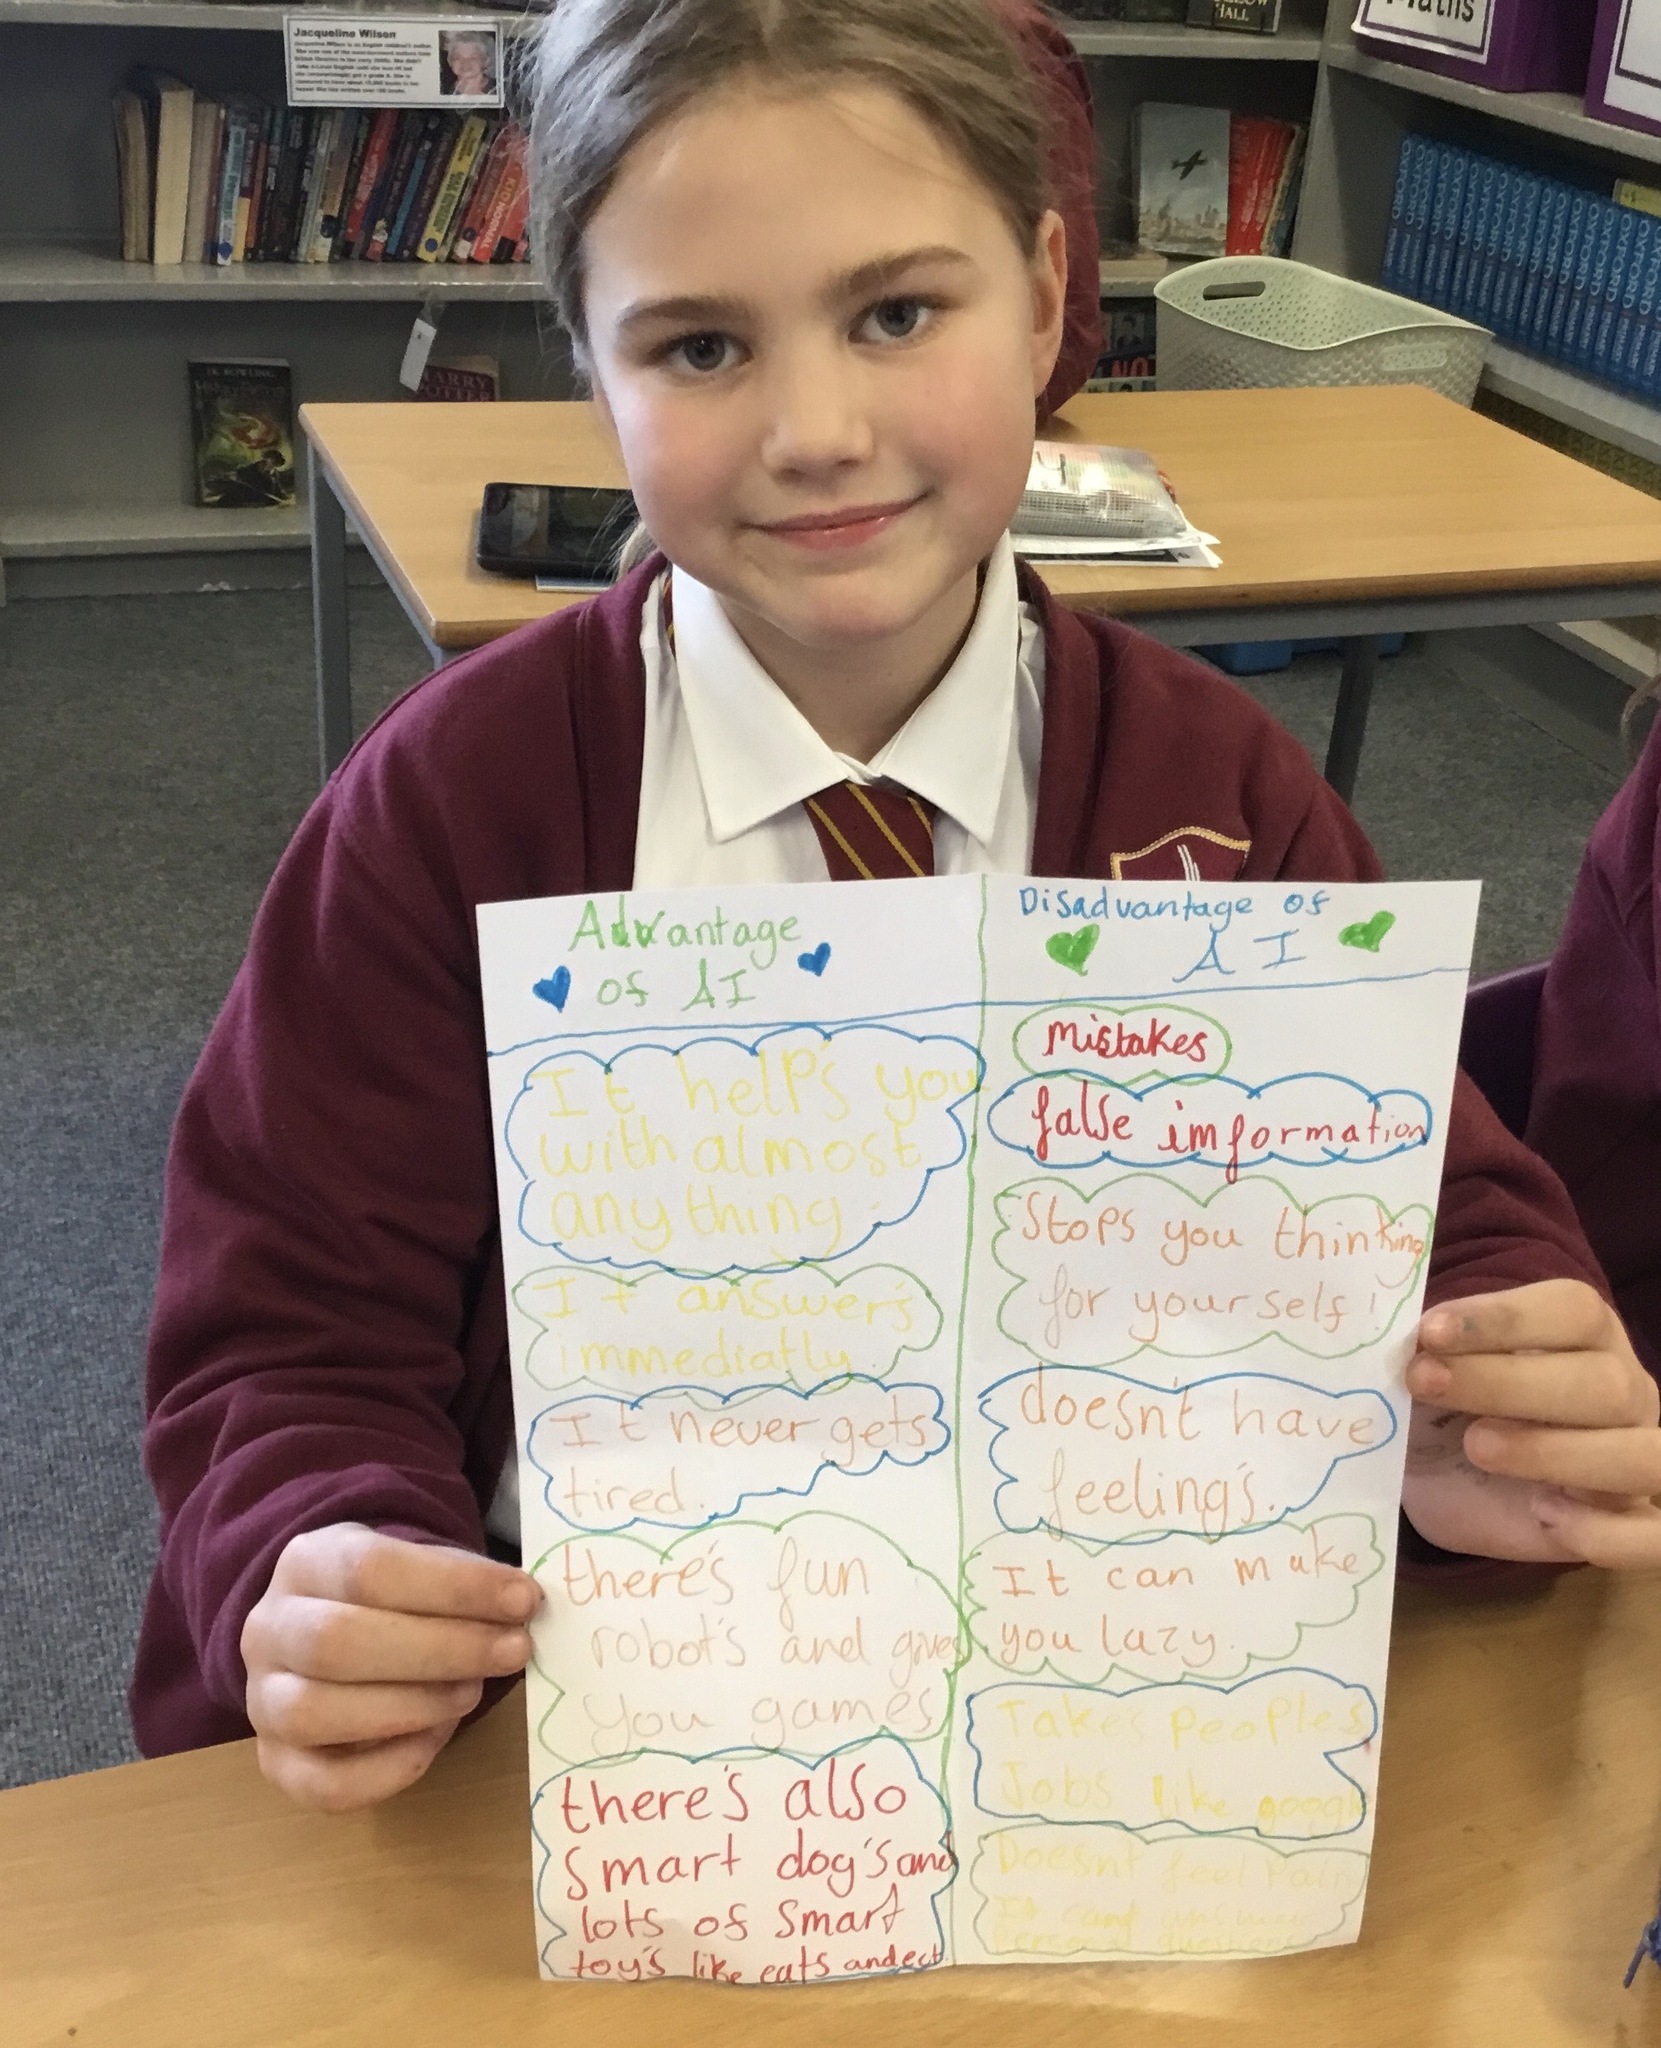 Jacqueline Wilson
Jacqueline Wilson is an English children's author.
KID NORMAL
J.K. ROWLING
HARRY
POTTER
HALL
Maths
OXFORD
Advantage
of AI
It help's you
with almost
anything.
It answer's
immediatly.
It never gets
tired.
there's fun
robot's and gives
you games
there's also
smart dog's and
lots of smart
toy's like cats and ect.
Disadvantage of
AI
Mistakes
false imformation
Stops you thinking
for yourself!
doesn't have
feeling's.
It can make
you lazy.
Take's peoples
Jobs like google
Doesnt feel Pain
It cant answer
Personal questions